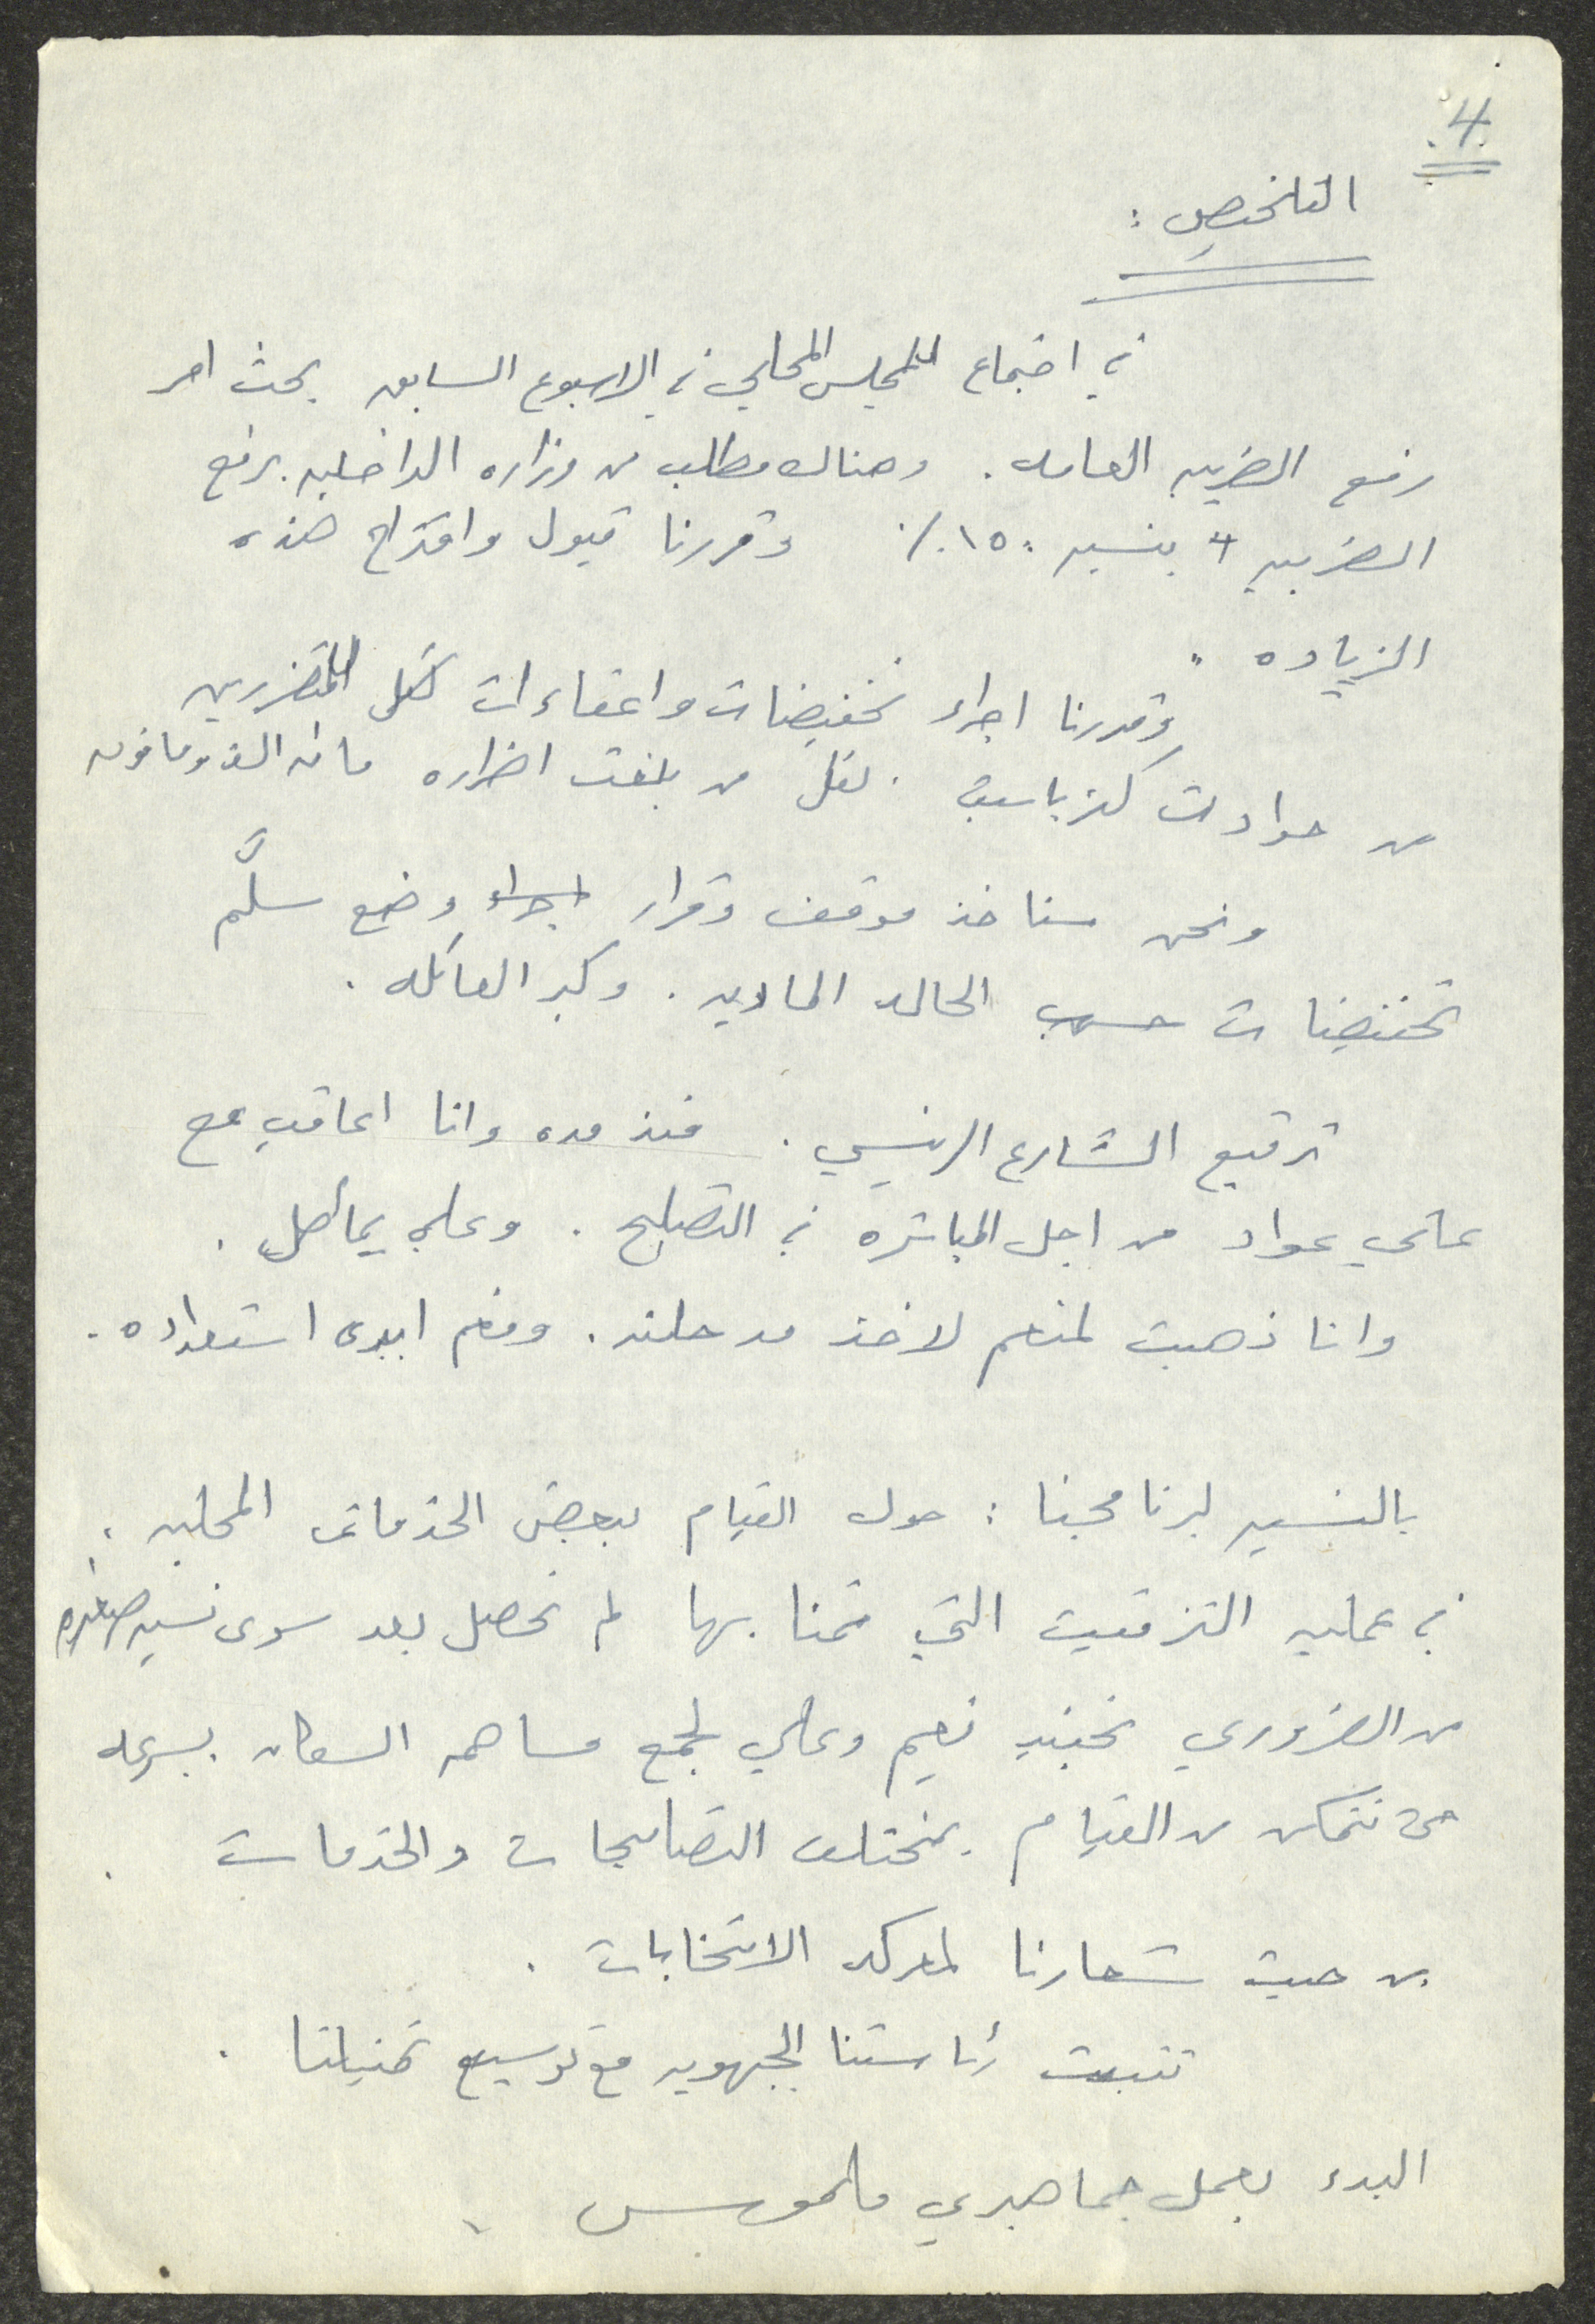 4.
التلخيص :
في اجتماع المجلس المحلي في الاسبوع السابق بحث امر
رفع الضريبه العامه . وهناك مطلب من وزاره الداخليه برفع
الضريبه بنسبه ١٥٠٪ وقررنا قبول واقتراح هذه
الزياده .
وقررنا اجراء تخفيضات واعفاءات لكل المتضررين
من حوادث كزباست . لكل من بلغت اضراره مائه الف وما فوق
ونحن سناخذ موقف وقرار اجراء وضع سلَّم
تخفيضات حسب الحاله الماديه . وكبر العائله .
ترقيع الشارع الرئيسي . منذ مده وانا اعاقب مع
علي عواد من اجل المباشره في التصليح . وعلي يماطل .
وانا ذهبت لمنعم لاخذ مدحلته . ومنعم ابدى استعداده .
بالنسبه لبرنامجنا : حول القيام ببعض الخدمات المحليه :
في عمليه التزفيت التي قمنا بها لم نحصل بعد سوى نسبه صغيره
من الضروري تجنيد نعيم وعلي لجمع مساهمه السكان بسرعه
حتى نتمكن من القيام بمختلف التصليحات والخدمات .
من حيث شعارنا لمعركه الانتخابات .
تثبيت رئاستنا الجبهويه مع توسيع تمثيلنا .
البدء بعمل جماهيري ملموس .